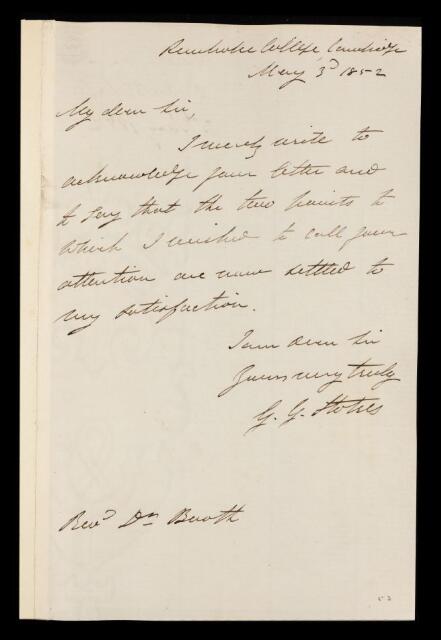 Pembroke College Cambridge
May 3d 1852
My dear Sir,
I merely write to
acknowledge your letter and
to say that the two points to
which I wished to call your
attention are now settled to
my satisfaction.
I am dear Sir
Yours very truly
G. G. Stokes
Revd Dr Booth
52